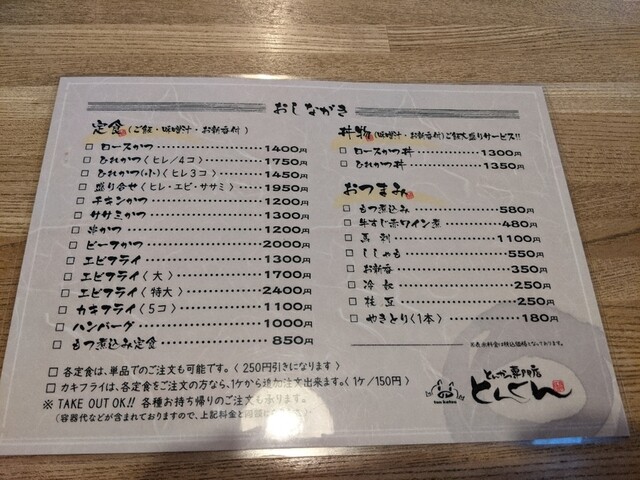 おしながき
定食(ご飯・味噌汁・お新香付)
□ ロースかつ 1400円
□ ひれかつ〈ヒレ/4コ〉 1750円
□ ひれかつ(小)〈ヒレ3コ〉 1450円
□ 盛り合せ〈ヒレ・エビ・ササミ〉 1950円
□ チキンかつ 1200円
□ ササミかつ 1300円
□ 串かつ 1200円
□ ビーフかつ 2000円
□ エビフライ 1300円
□ エビフライ〈大〉 1700円
□ エビフライ〈特大〉 2400円
□ カキフライ〈5コ〉 1100円
□ ハンバーグ 1000円
□ もつ煮込み定食 850円
□ 各定食は、単品でのご注文も可能です。〈250円引きになります〉
□ カキフライは、各定食をご注文の方なら、1ケから追加注文出来ます。〈1ケ/150円〉
※ TAKE OUT OK!! 各種お持ち帰りのご注文も承ります。
(容器代などが含まれておりますので、上記料金と
丼物(味噌汁・お新香付)ご飯大盛りサービス!!
□ ロースかつ丼 1300円
□ ひれかつ丼 1350円
おつまみ
□ もつ煮込み 580円
□ 牛すじ赤ワイン煮 480円
□ 馬刺 1100円
□ ししゃも 550円
□ お新香 350円
□ 冷奴 250円
□ 枝豆 250円
□ やきとり〈1本〉 180円
※表示料金は税込価格となっております。
とんかつ専門店
とんとん